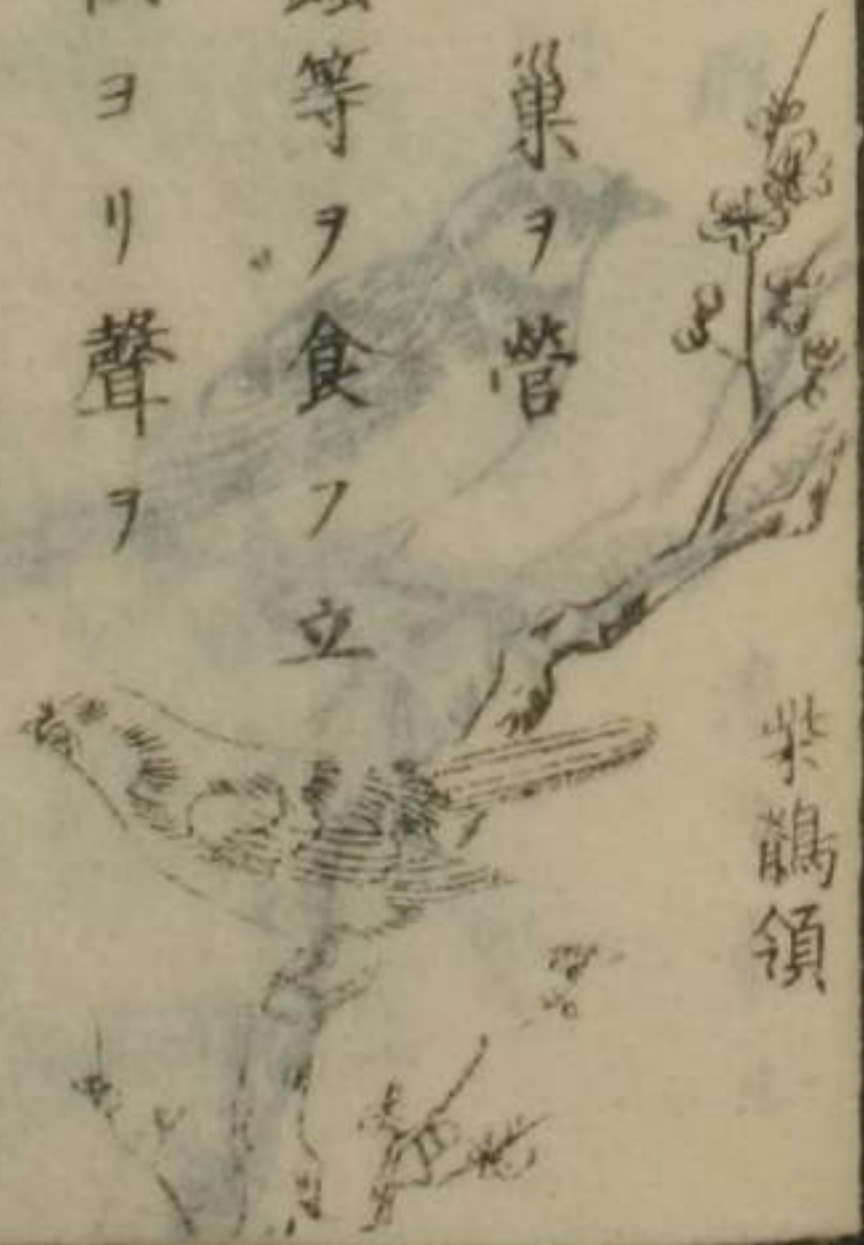 柴鶺領
巢ヲ營
等ヲ食フ立
ヨリ聲ヲ